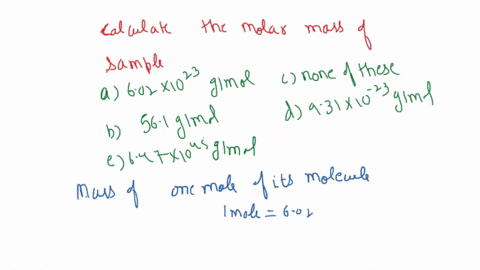 calculate the molar mass of
sample
a) 6.02 × 10^23 g/mol c) none of these
b) 56.1 g/mol d) 9.31 × 10^-23 g/mol
e) 6.47 × 10^45 g/mol
Mass of one mole of its molecule
1 mole = 6.02